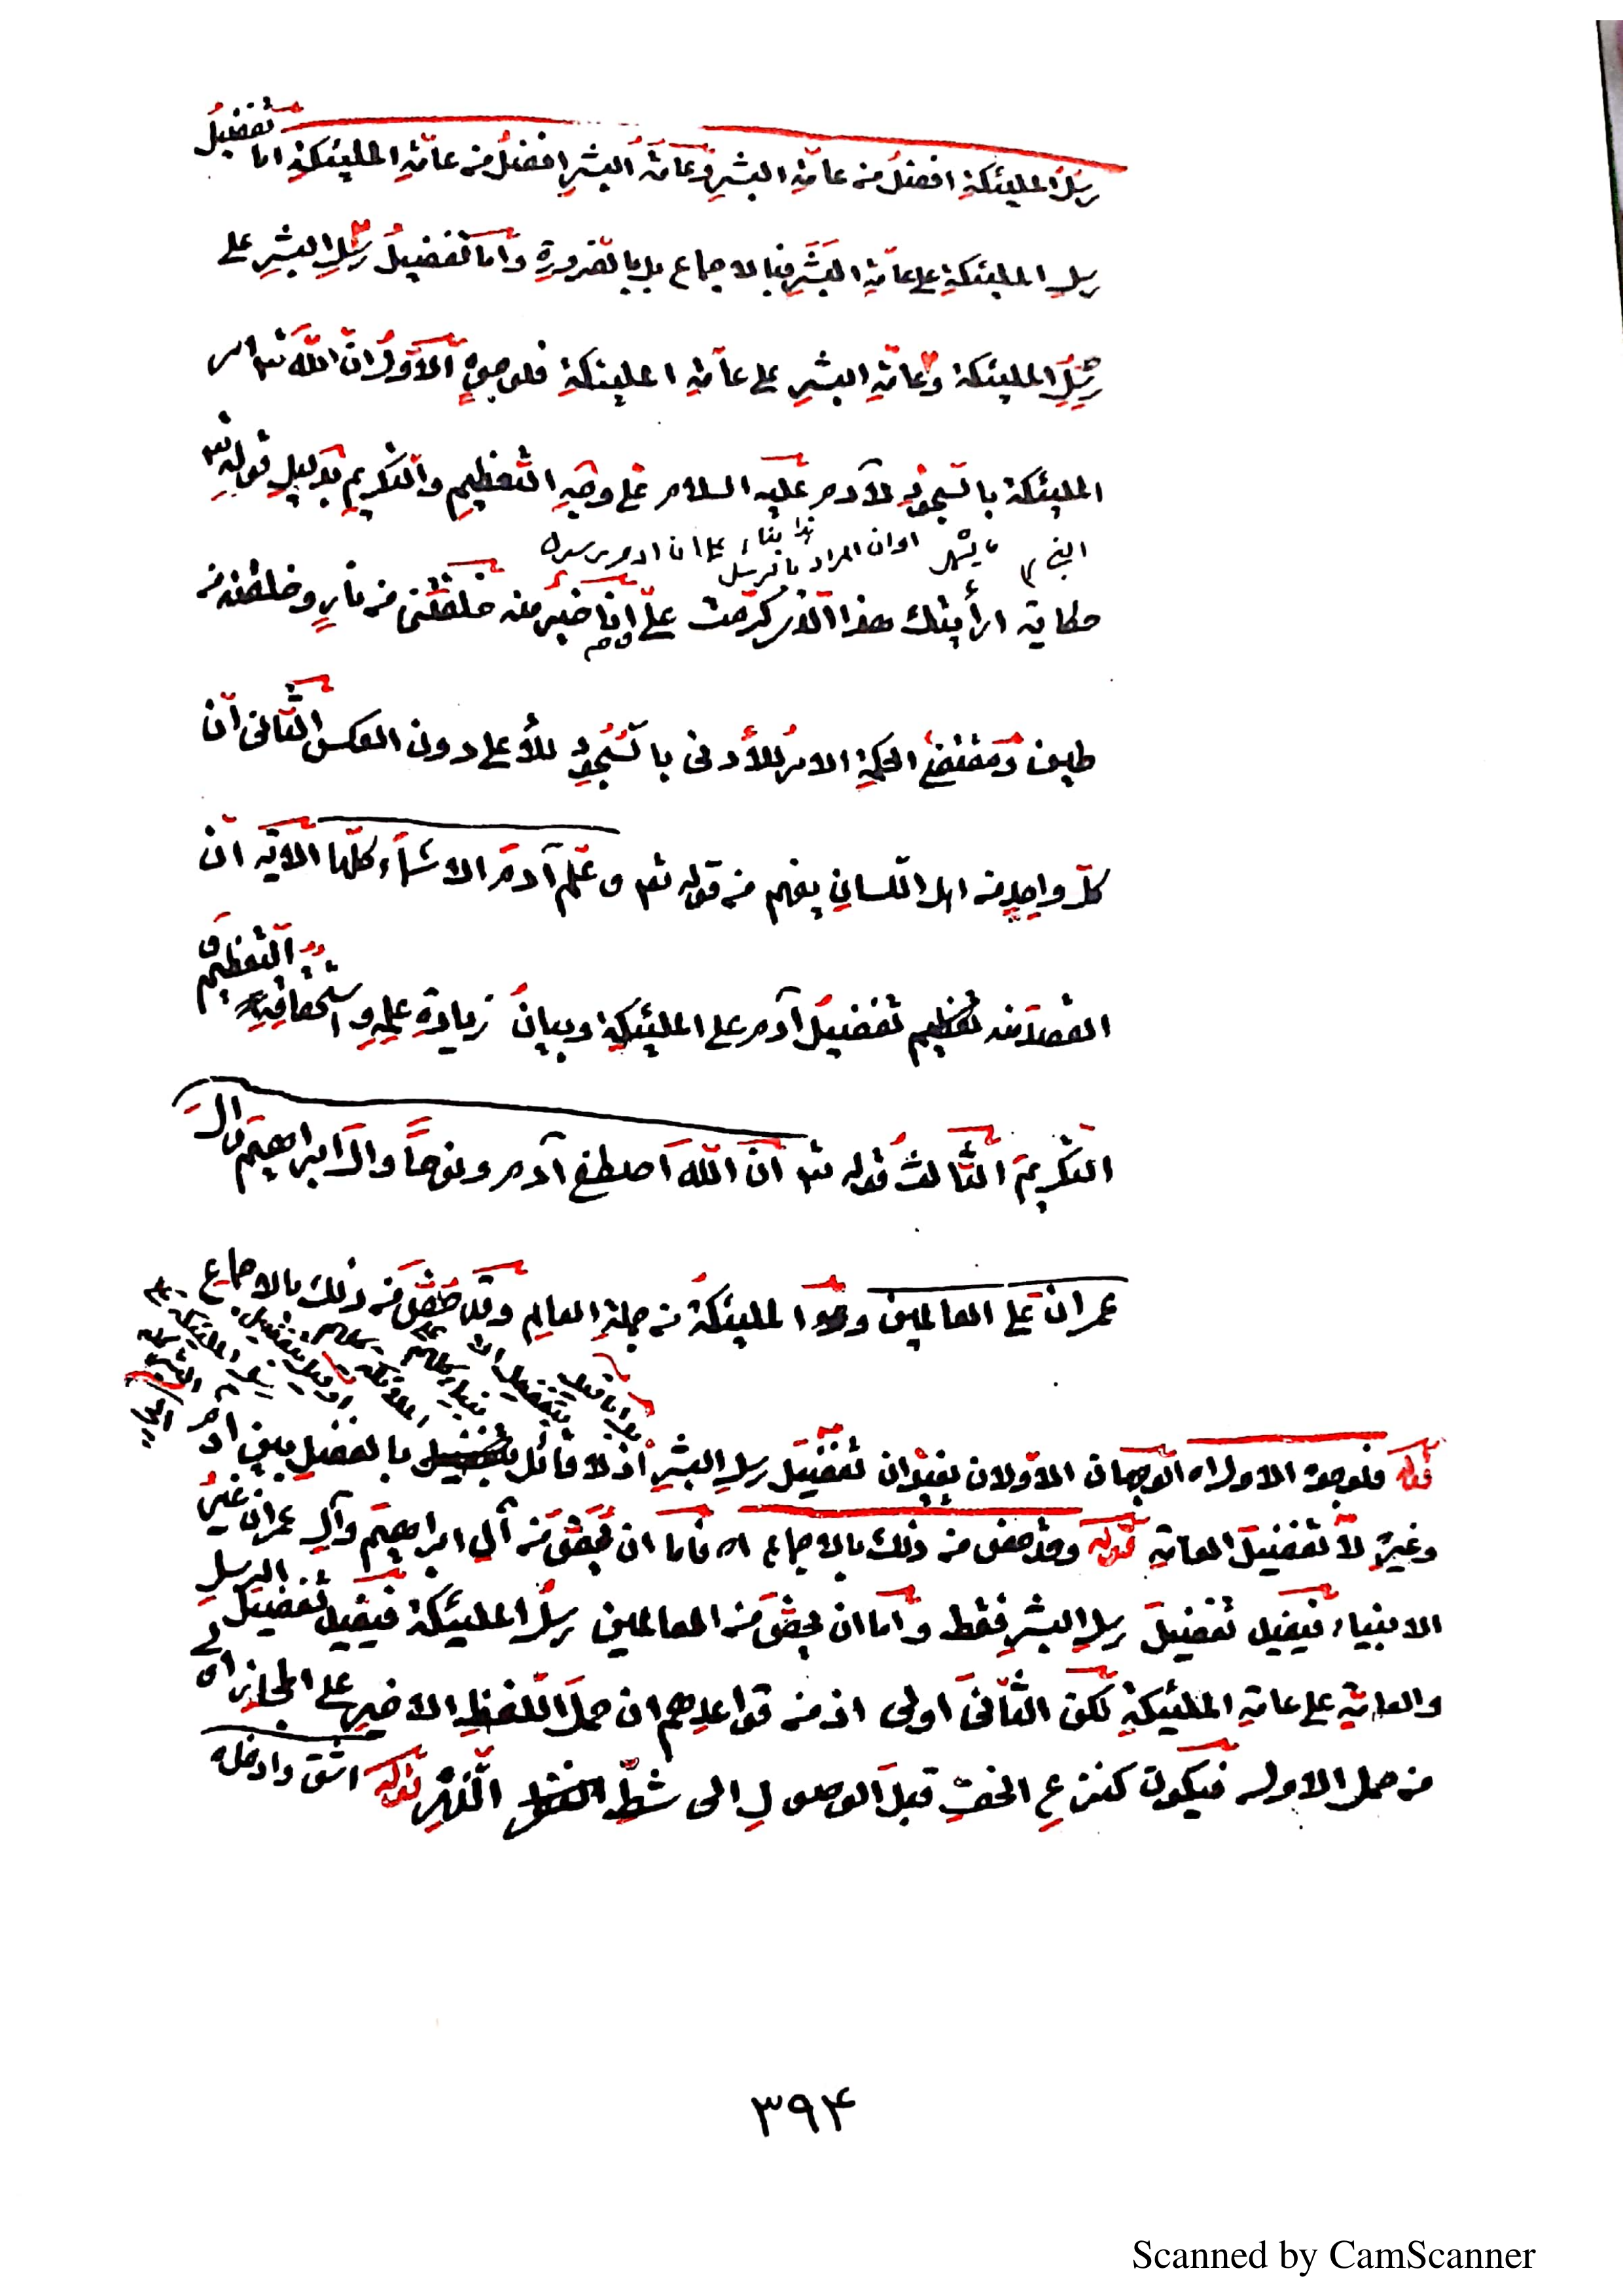 رسل الملیئکة افضل من عامّة البشر وعامّة البشر افضل من عامّة الملیئکة اما تفضیل
رسل الملیئکة علی عامّة البشر فبالاجماع بل بالضرورة واما تفضیل رسل البشر علی
رسل الملیئکة وعامّة البشر علی عامّة الملیئکة فلوجوهٍ الاوّل انّ الله تع امر
الملیئکة بالسجود لآدم علیه السلام علی وجه التعظیم والتکریم بدلیل قوله تع
اوان المراد بالرسل
حکایة ارأیتك هذا الذی کرّمت علیّ وانا خیر منه خلقتنی من نارٍ وخلقته من
طین ومقتضی الحکمة الامر للأدنی بالسّجود للأعلی دون العکس الثّانی انّ
کلّ واحدٍ من اهل اللسان یفهم من قوله تع وعلّم آدم الاسماء کلّها الآیة انّ
القصد منه تفضیل آدم علی الملیئکة وبیان زیادة علمه واستحقاقه التعظیم و
التکریم الثّالث قوله تع انّ الله اصطفی آدم ونوحاً وال ابراهیم وال
عمران علی العالمین والملیئکة من جملة العالم وقد خصّ من ذلك بالاجماع
قوله فلوجوه الاول اه الوجهان الاوّلان یفیدان تفضیل رسل البشر اذ لا قائل بالفضل بین آدم
وغیره لا تفضیل العامة قوله وقد خص من ذلك بالاجماع اه فاما ان یخصّ من آل ابراهیم وآل عمران غیر
الانبیاء فیفید تفضیل رسل البشر فقط واما ان یخصّ من العالمین رسل الملیئکة فیفید تفضیل الرسل
والعامة علی عامة الملیئکة لکن الثّانی اولی اذ من قواعدهم ان حمل اللفظ الاخیر علی المجاز اولی
من حمل الاول فیکون کنزع الخفّ قبل الوصول الی شطّ النّهر قوله اشق وادخل
۳۹۴
Scanned by CamScanner